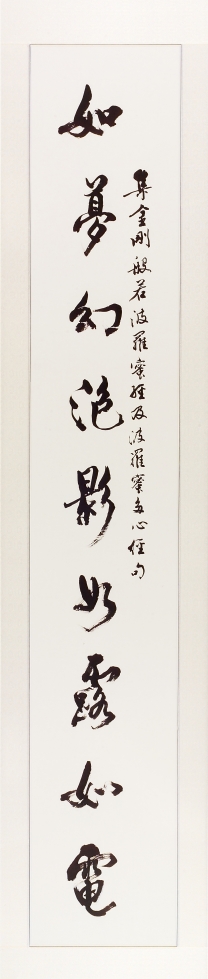 集金剛般若波羅蜜經及波羅蜜多心經句
如夢幻泡影如露如電